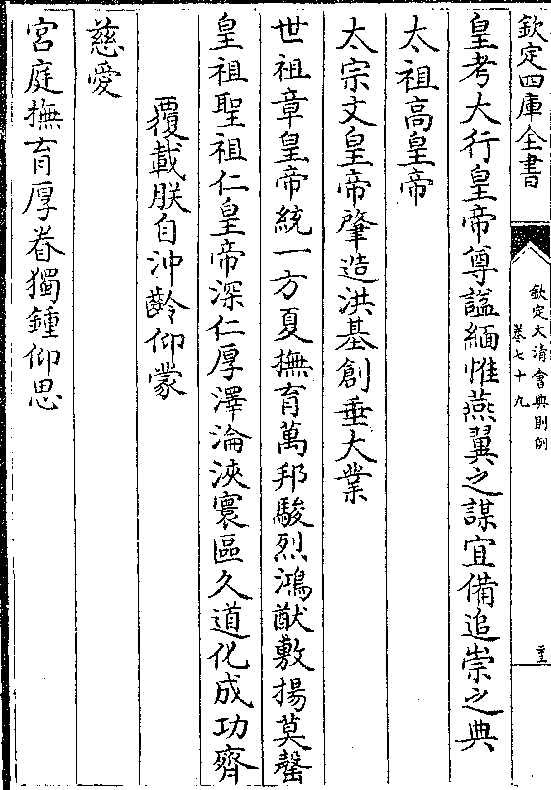 欽定四庫全書
欽定大清會典則例
卷七十九
皇考大行皇帝尊諡緬惟燕翼之謀宜備追崇之典
太祖高皇帝
太宗文皇帝肇造洪基創垂大業
世祖章皇帝統一方夏撫育萬邦駿烈鴻猷敷揚莫罄
皇祖聖祖仁皇帝深仁厚澤淪浹寰區久道化成功齊
覆載朕自沖齡仰蒙
慈愛
宮庭撫育厚眷獨鍾仰思